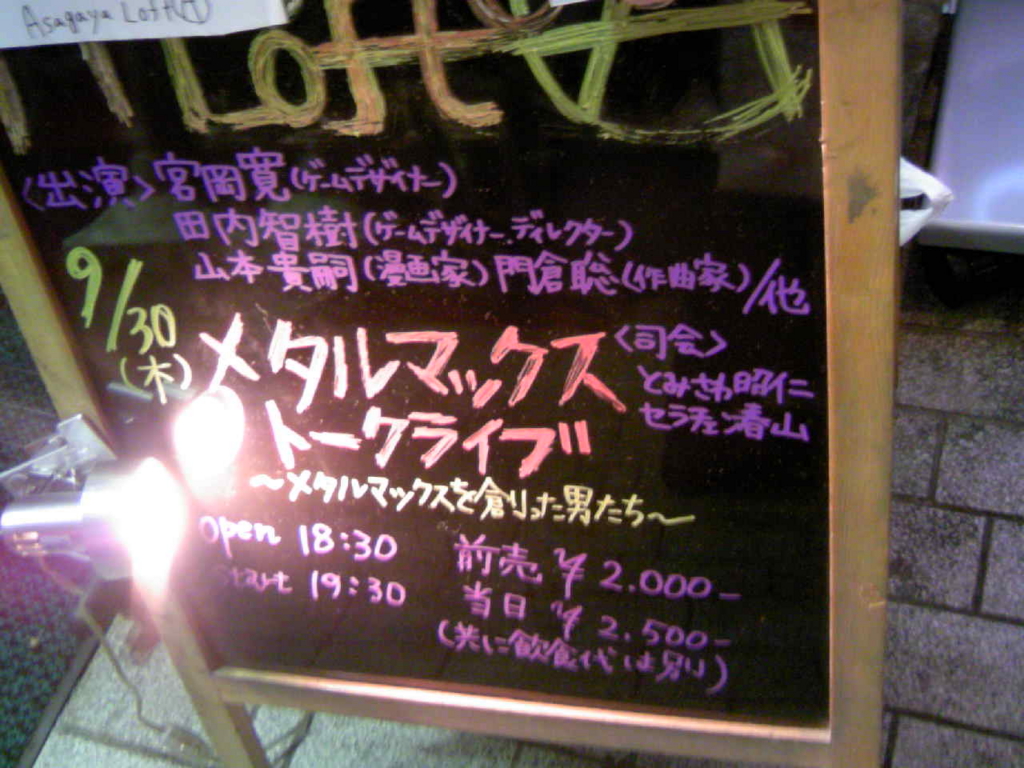 Asagaya Loft A
Loft A
〈出演〉宮岡寛(ゲームデザイナー)
田内智樹(ゲームデザイナー.ディレクター)
山本貴嗣(漫画家)門倉聡(作曲家)/他
9/30
(木)
メタルマックス
トークライブ
〈司会〉
とみさわ昭仁
セラチェン春山
〜メタルマックスを創った男たち〜
open 18:30
start 19:30
前売 ¥2.000-
当日 ¥2.500-
(共に飲食代は別)